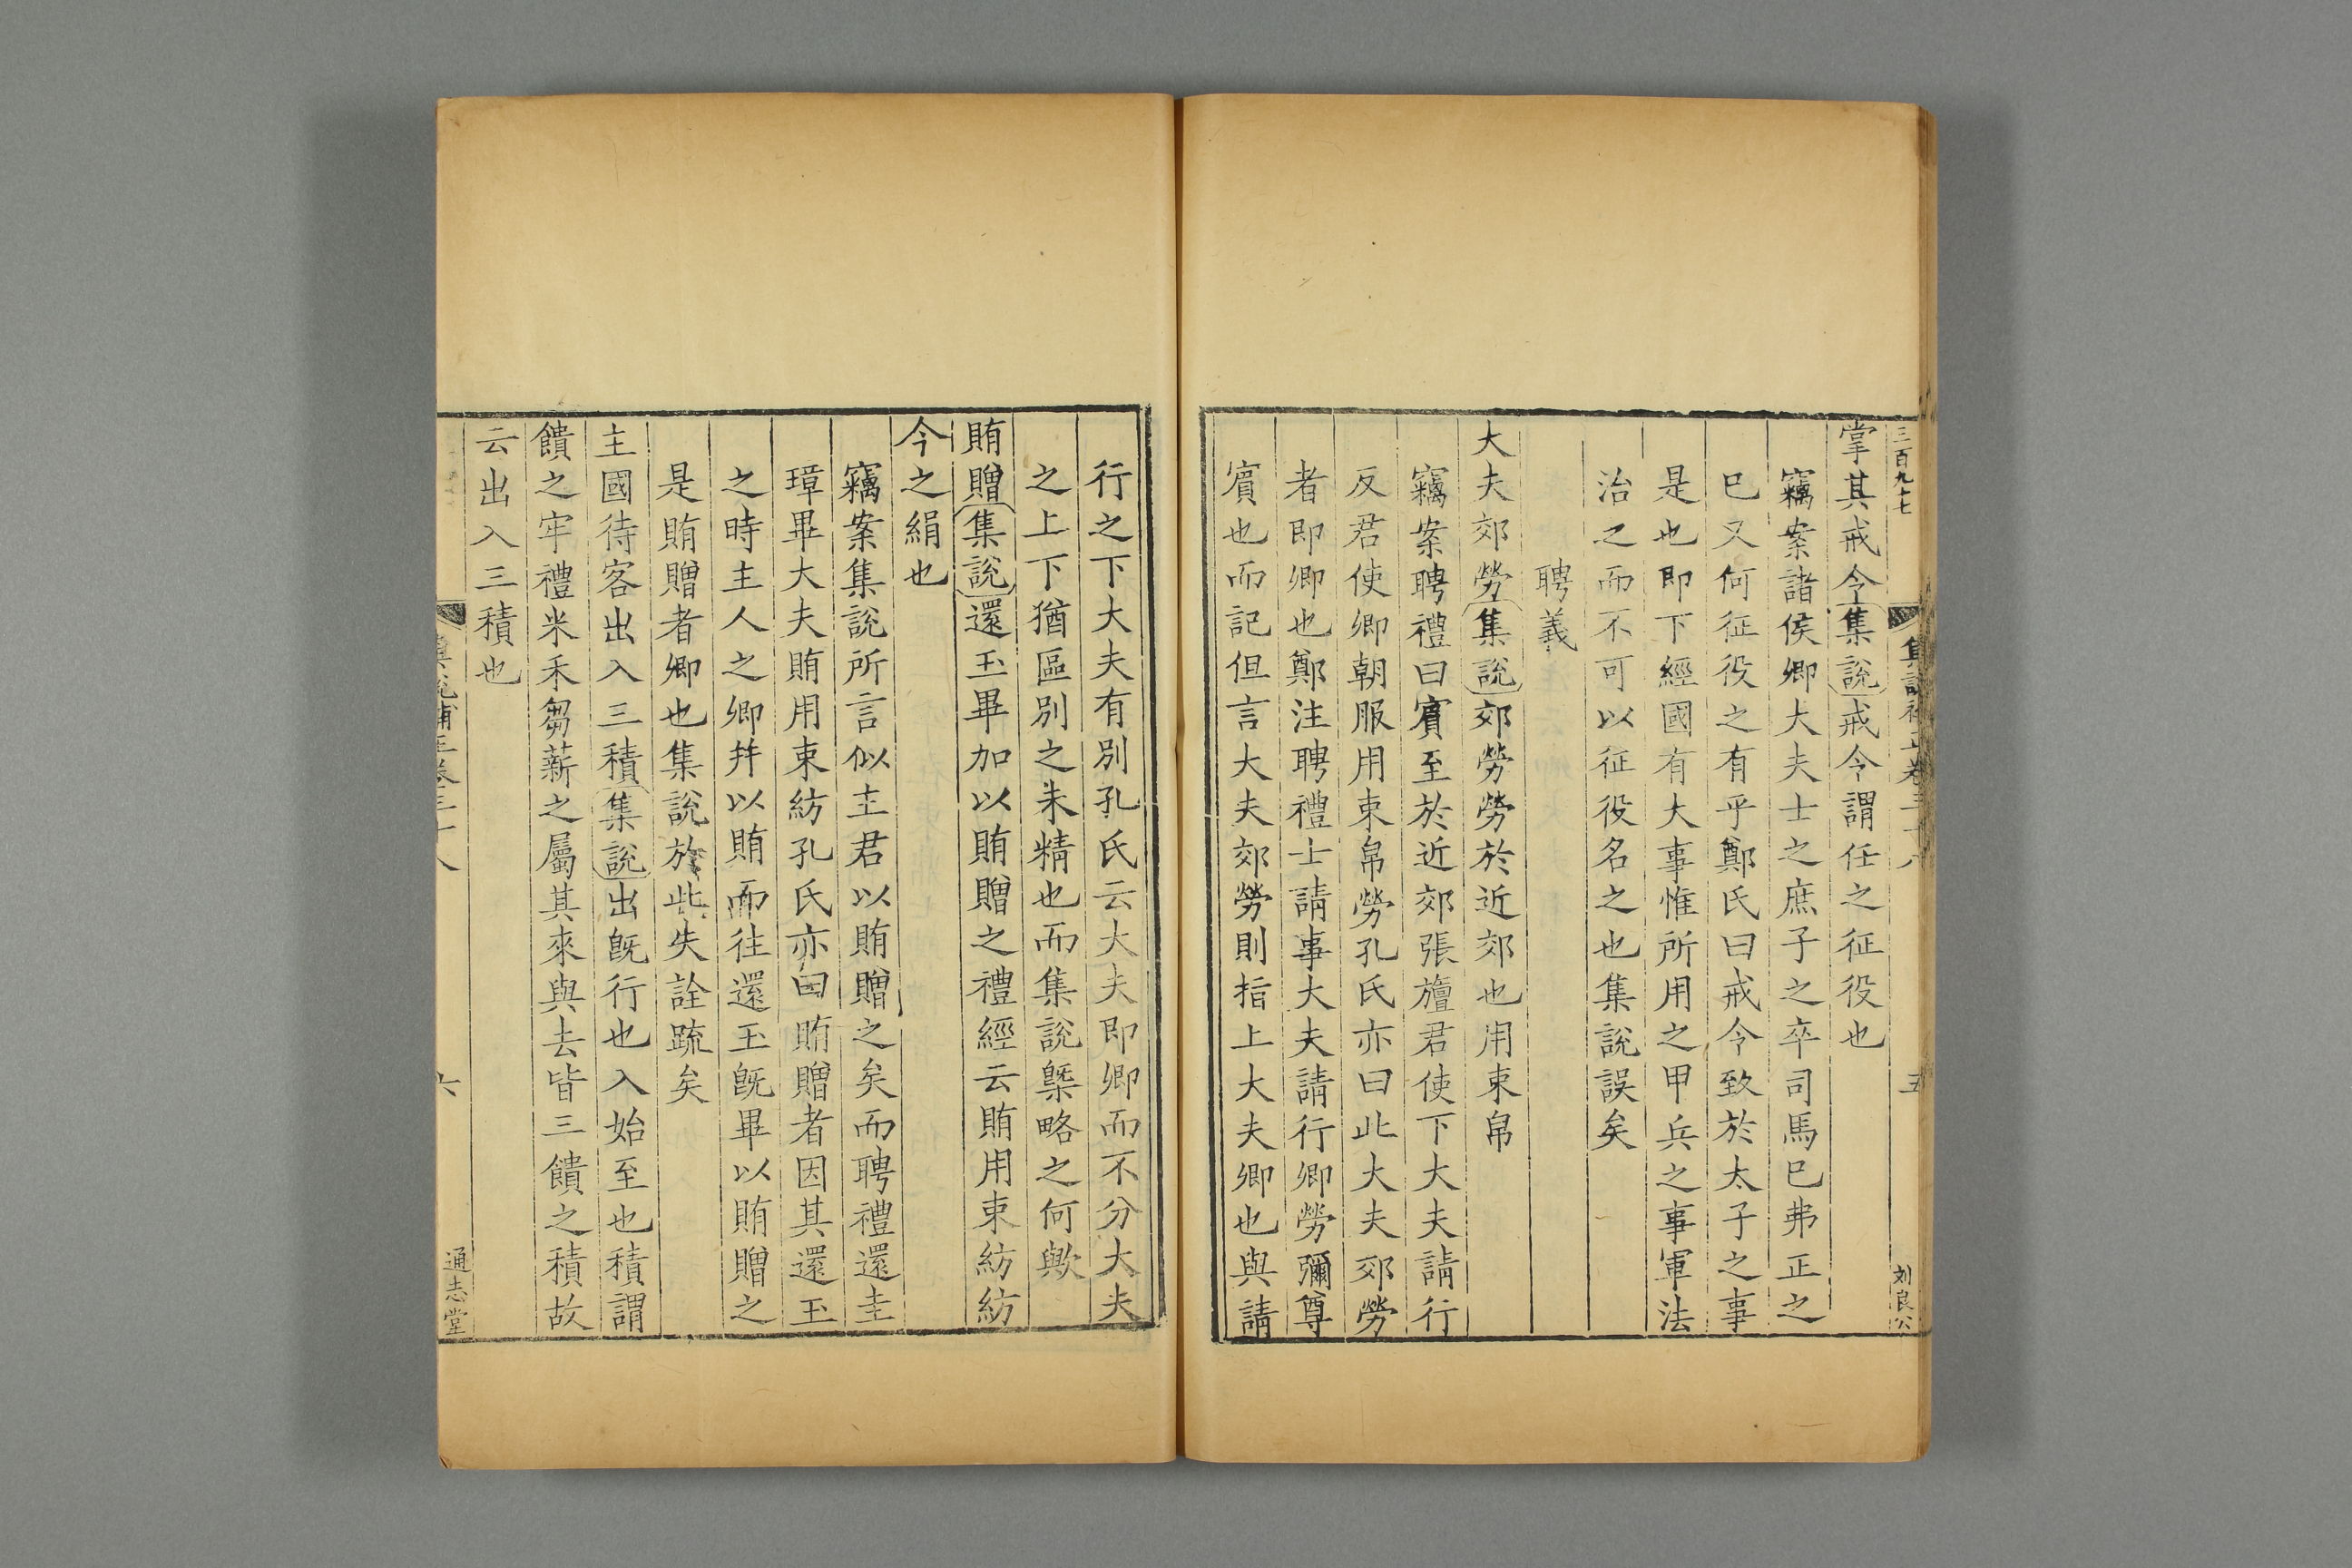 三百九十七
集說補正卷三十八
五
刘良公
掌其戒令集說戒令謂任之征役也
竊案諸侯卿大夫士之庶子之卒司馬巳弗正之
巳又何征役之有乎鄭氏曰戒令致於太子之事
是也即下經國有大事惟所用之甲兵之事軍法
治之而不可以征役名之也集說誤矣
聘義
大夫郊勞集說郊勞勞於近郊也用束帛
竊案聘禮曰賓至於近郊張旜君使下大夫請行
反君使卿朝服用束帛勞孔氏亦曰此大夫郊勞
者即卿也鄭注聘禮士請事大夫請行卿勞彌尊
賓也而記但言大夫郊勞則指上大夫卿也與請
行之下大夫有別孔氏云大夫即卿而不分大夫
之上下猶區別之未精也而集說槩略之何歟
賄贈集說還玉畢加以賄贈之禮經云賄用束紡紡
今之絹也
竊案集說所言似主君以賄贈之矣而聘禮還圭
璋畢大夫賄用束紡孔氏亦曰賄贈者因其還玉
之時主人之卿并以賄而往還玉旣畢以賄贈之
是賄贈者卿也集說於此失詮疏矣
主國待客出入三積集說出旣行也入始至也積謂
饋之牢禮米禾芻薪之屬其來與去皆三饋之積故
云出入三積也
集說補正卷三十八
六
通志堂